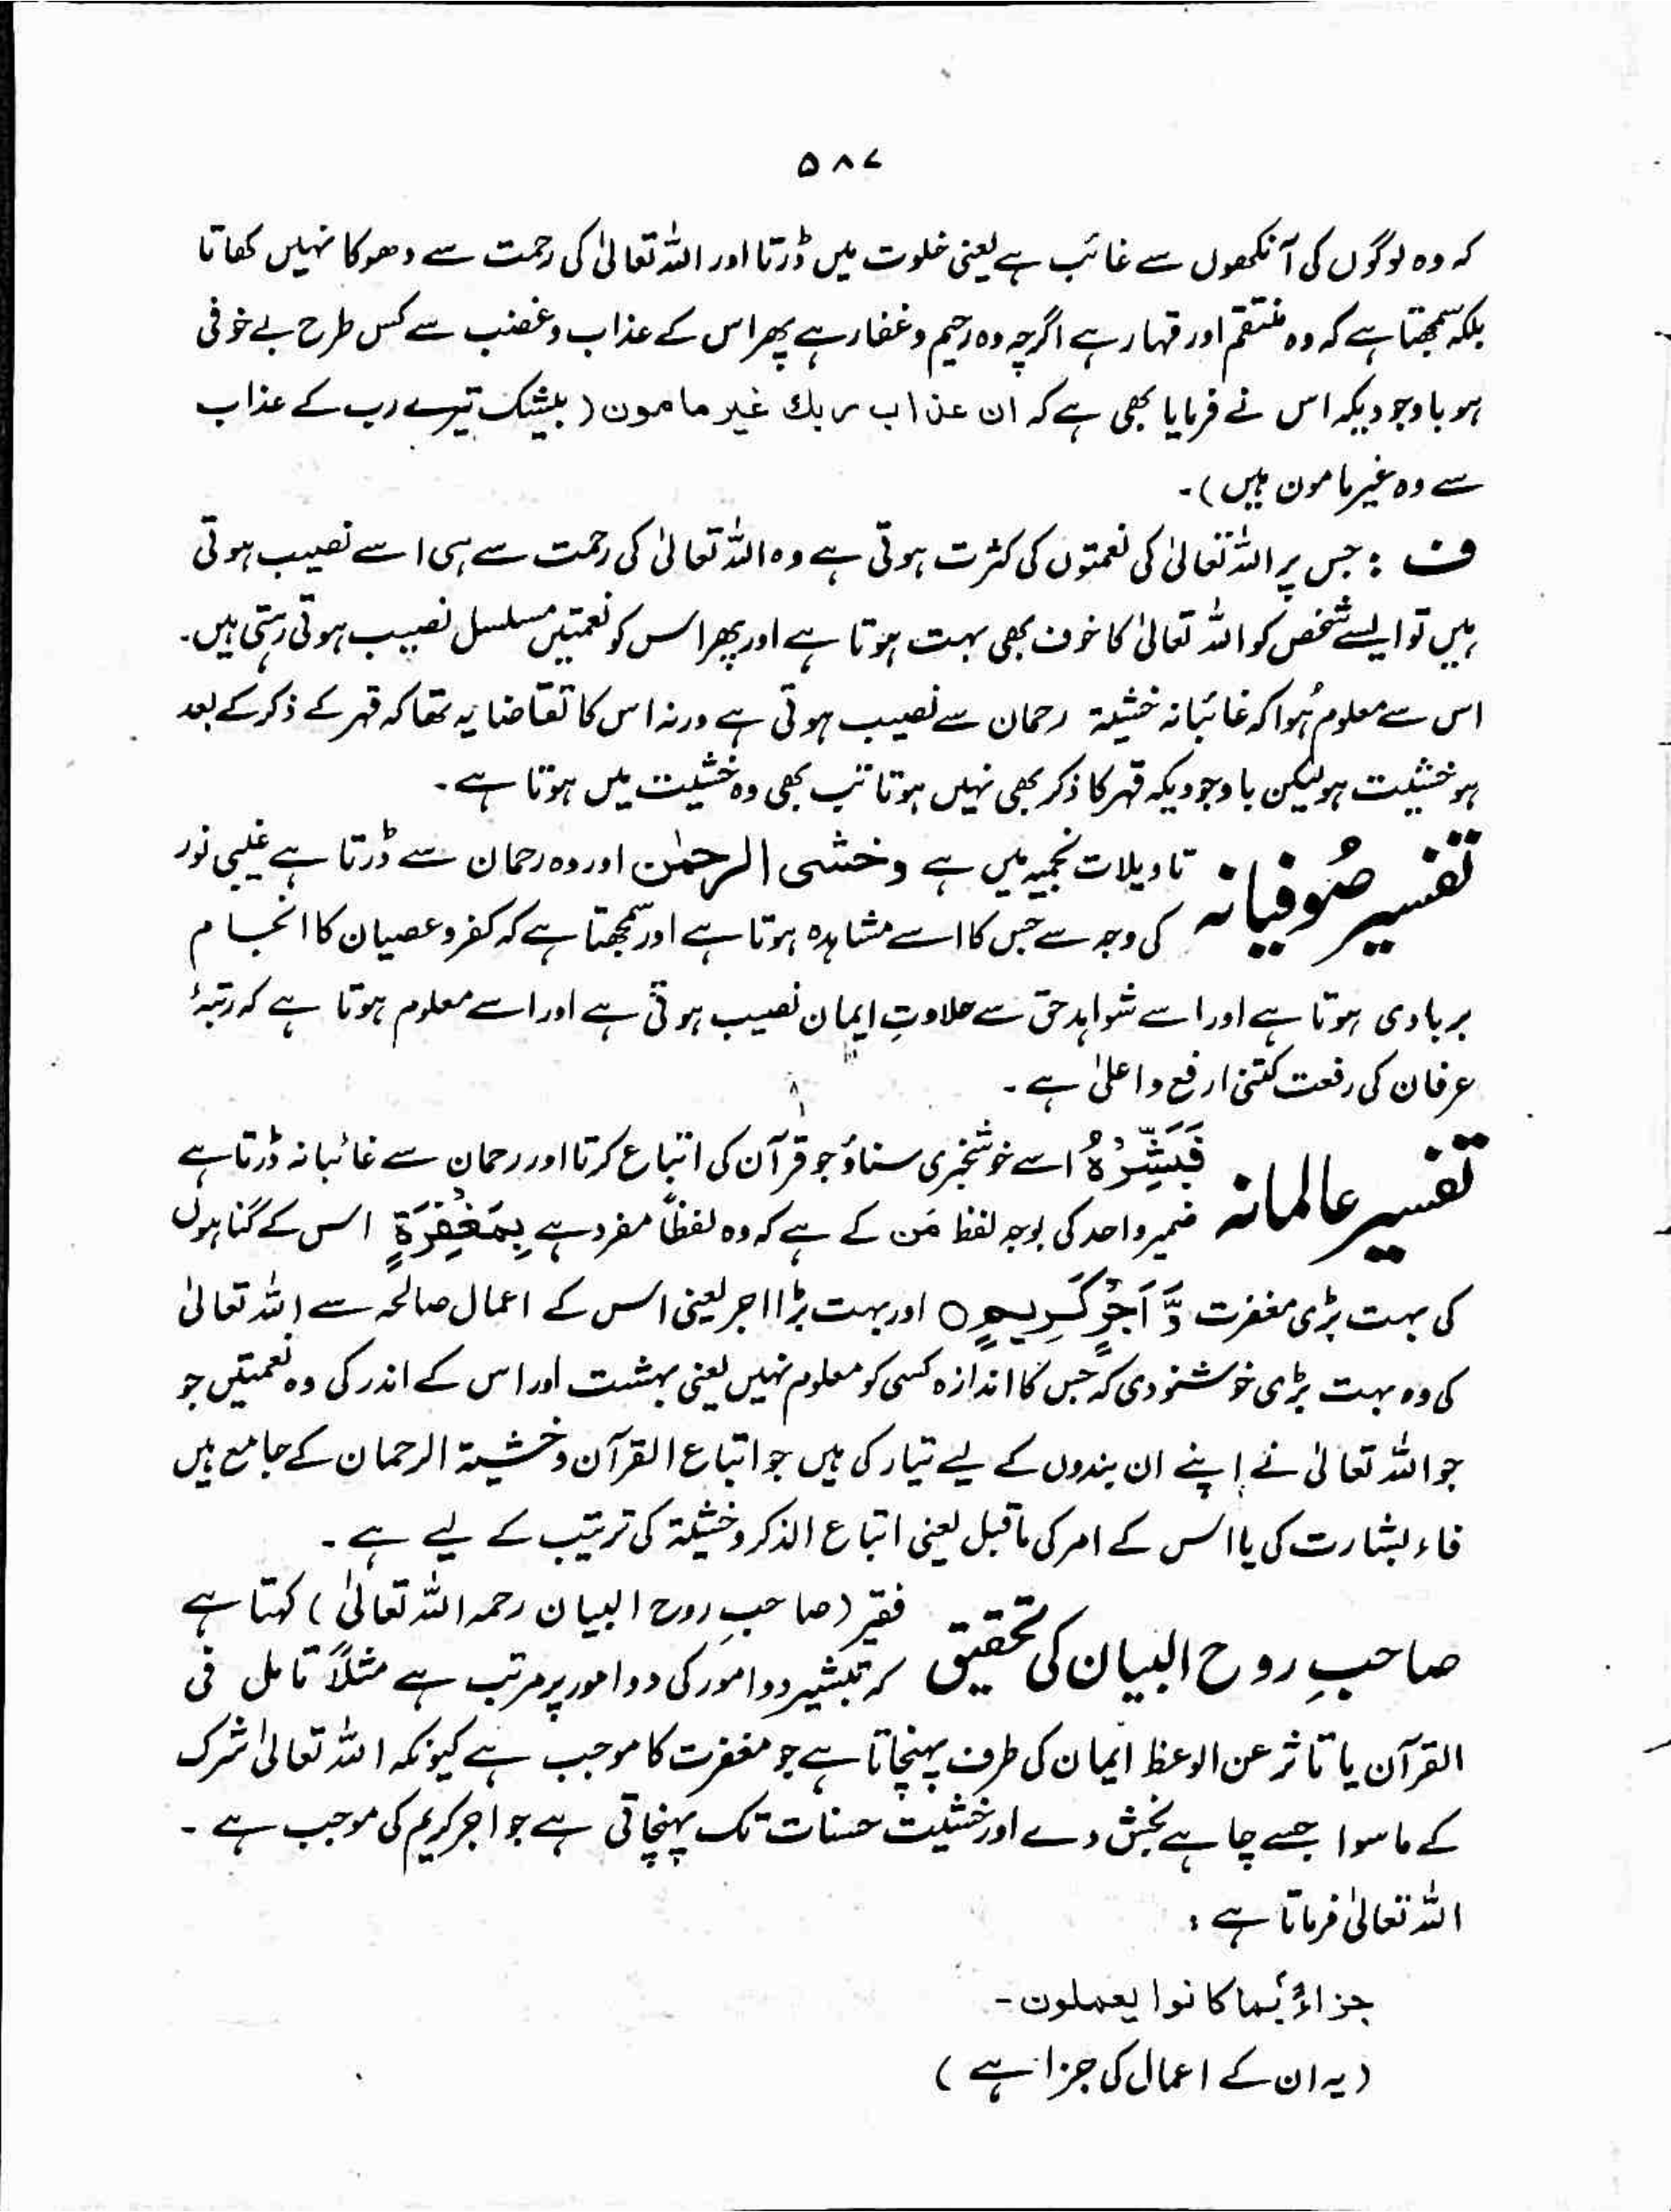 ۵۸۷
کہ وہ لوگوں کی آنکھوں سے غائب ہے یعنی خلوت میں ڈرتا اور اللہ تعالیٰ کی رحمت سے دھوکا نہیں کھاتا
بلکہ سمجھتا ہے کہ وہ منتقم اور قہار ہے اگرچہ وہ رحیم و غفار ہے پھر اس کے عذاب و غضب سے کس طرح بے خوفی
ہو باوجودیکہ اس نے فرمایا بھی ہے کہ ان عذاب ربك غیر مامون (بیشک تیرے رب کے عذاب
سے وہ غیر مامون ہیں)۔
ف : جس پر اللہ تعالیٰ کی نعمتوں کی کثرت ہوتی ہے وہ اللہ تعالیٰ کی رحمت سے ہی اسے نصیب ہوتی
ہیں تو ایسے شخص کو اللہ تعالیٰ کا خوف بھی بہت ہوتا ہے اور پھر اس کو نعمتیں مسلسل نصیب ہوتی رہتی ہیں۔
اس سے معلوم ہُوا کہ غائبانہ خشیۃ رحمان سے نصیب ہوتی ہے ورنہ اس کا تقاضا یہ تھا کہ قہر کے ذکر کے بعد
ہو خشیت ہو لیکن باوجودیکہ قہر کا ذکر بھی نہیں ہوتا تب بھی وہ خشیت میں ہوتا ہے۔
تفسیر صُوفیانہ تاویلات نجمیہ میں ہے وخشی الرحمٰن اور وہ رحمان سے ڈرتا ہے غیبی نور
کی وجہ سے جس کا اسے مشاہدہ ہوتا ہے اور سمجھتا ہے کہ کفر و عصیان کا انجام
بربادی ہوتا ہے اور اسے شواہد حق سے حلاوتِ ایمان نصیب ہوتی ہے اور اسے معلوم ہوتا ہے کہ رتبۂ
عرفان کی رفعت کتنی ارفع و اعلیٰ ہے۔
تفسیر عالمانہ فَبَشِّرْهُ اسے خوشخبری سناؤ جو قرآن کی اتباع کرتا اور رحمان سے غائبانہ ڈرتا ہے
ضمیر واحد کی بوجہ لفظ مَن کے ہے کہ وہ لفظاً مفرد ہے بِمَغْفِرَةٍ اس کے گناہوں
کی بہت بڑی مغفرت وَّ اَجْرٍ كَرِیمٍ ○ اور بہت بڑا اجر یعنی اس کے اعمال صالحہ سے اللہ تعالیٰ
کی وہ بہت بڑی خوشنودی کہ جس کا اندازہ کسی کو معلوم نہیں یعنی بہشت اور اس کے اندر کی وہ نعمتیں جو
جو اللہ تعالیٰ نے اپنے ان بندوں کے لیے تیار کی ہیں جو اتباع القرآن و خشیۃ الرحمان کے جامع ہیں
فاء بشارت کی یا اس کے امر کی ماقبل یعنی اتباع الذکر و خشیۃ کی ترتیب کے لیے ہے۔
صاحبِ روح البیان کی تحقیق فقیر (صاحبِ روح البیان رحمہ اللہ تعالیٰ) کہتا ہے
کہ تبشیر دو امور کی دو امور پر مرتب ہے مثلاً تامل فی
القرآن یا تاثر عن الوعظ ایمان کی طرف پہنچاتا ہے جو مغفرت کا موجب ہے کیونکہ اللہ تعالیٰ شرک
کے ماسوا جسے چاہے بخش دے اور خشیت حسنات تک پہنچاتی ہے جو اجر کریم کی موجب ہے۔
اللہ تعالیٰ فرماتا ہے :
جزاءً بما كانوا يعملون۔
(یہ ان کے اعمال کی جزا ہے)